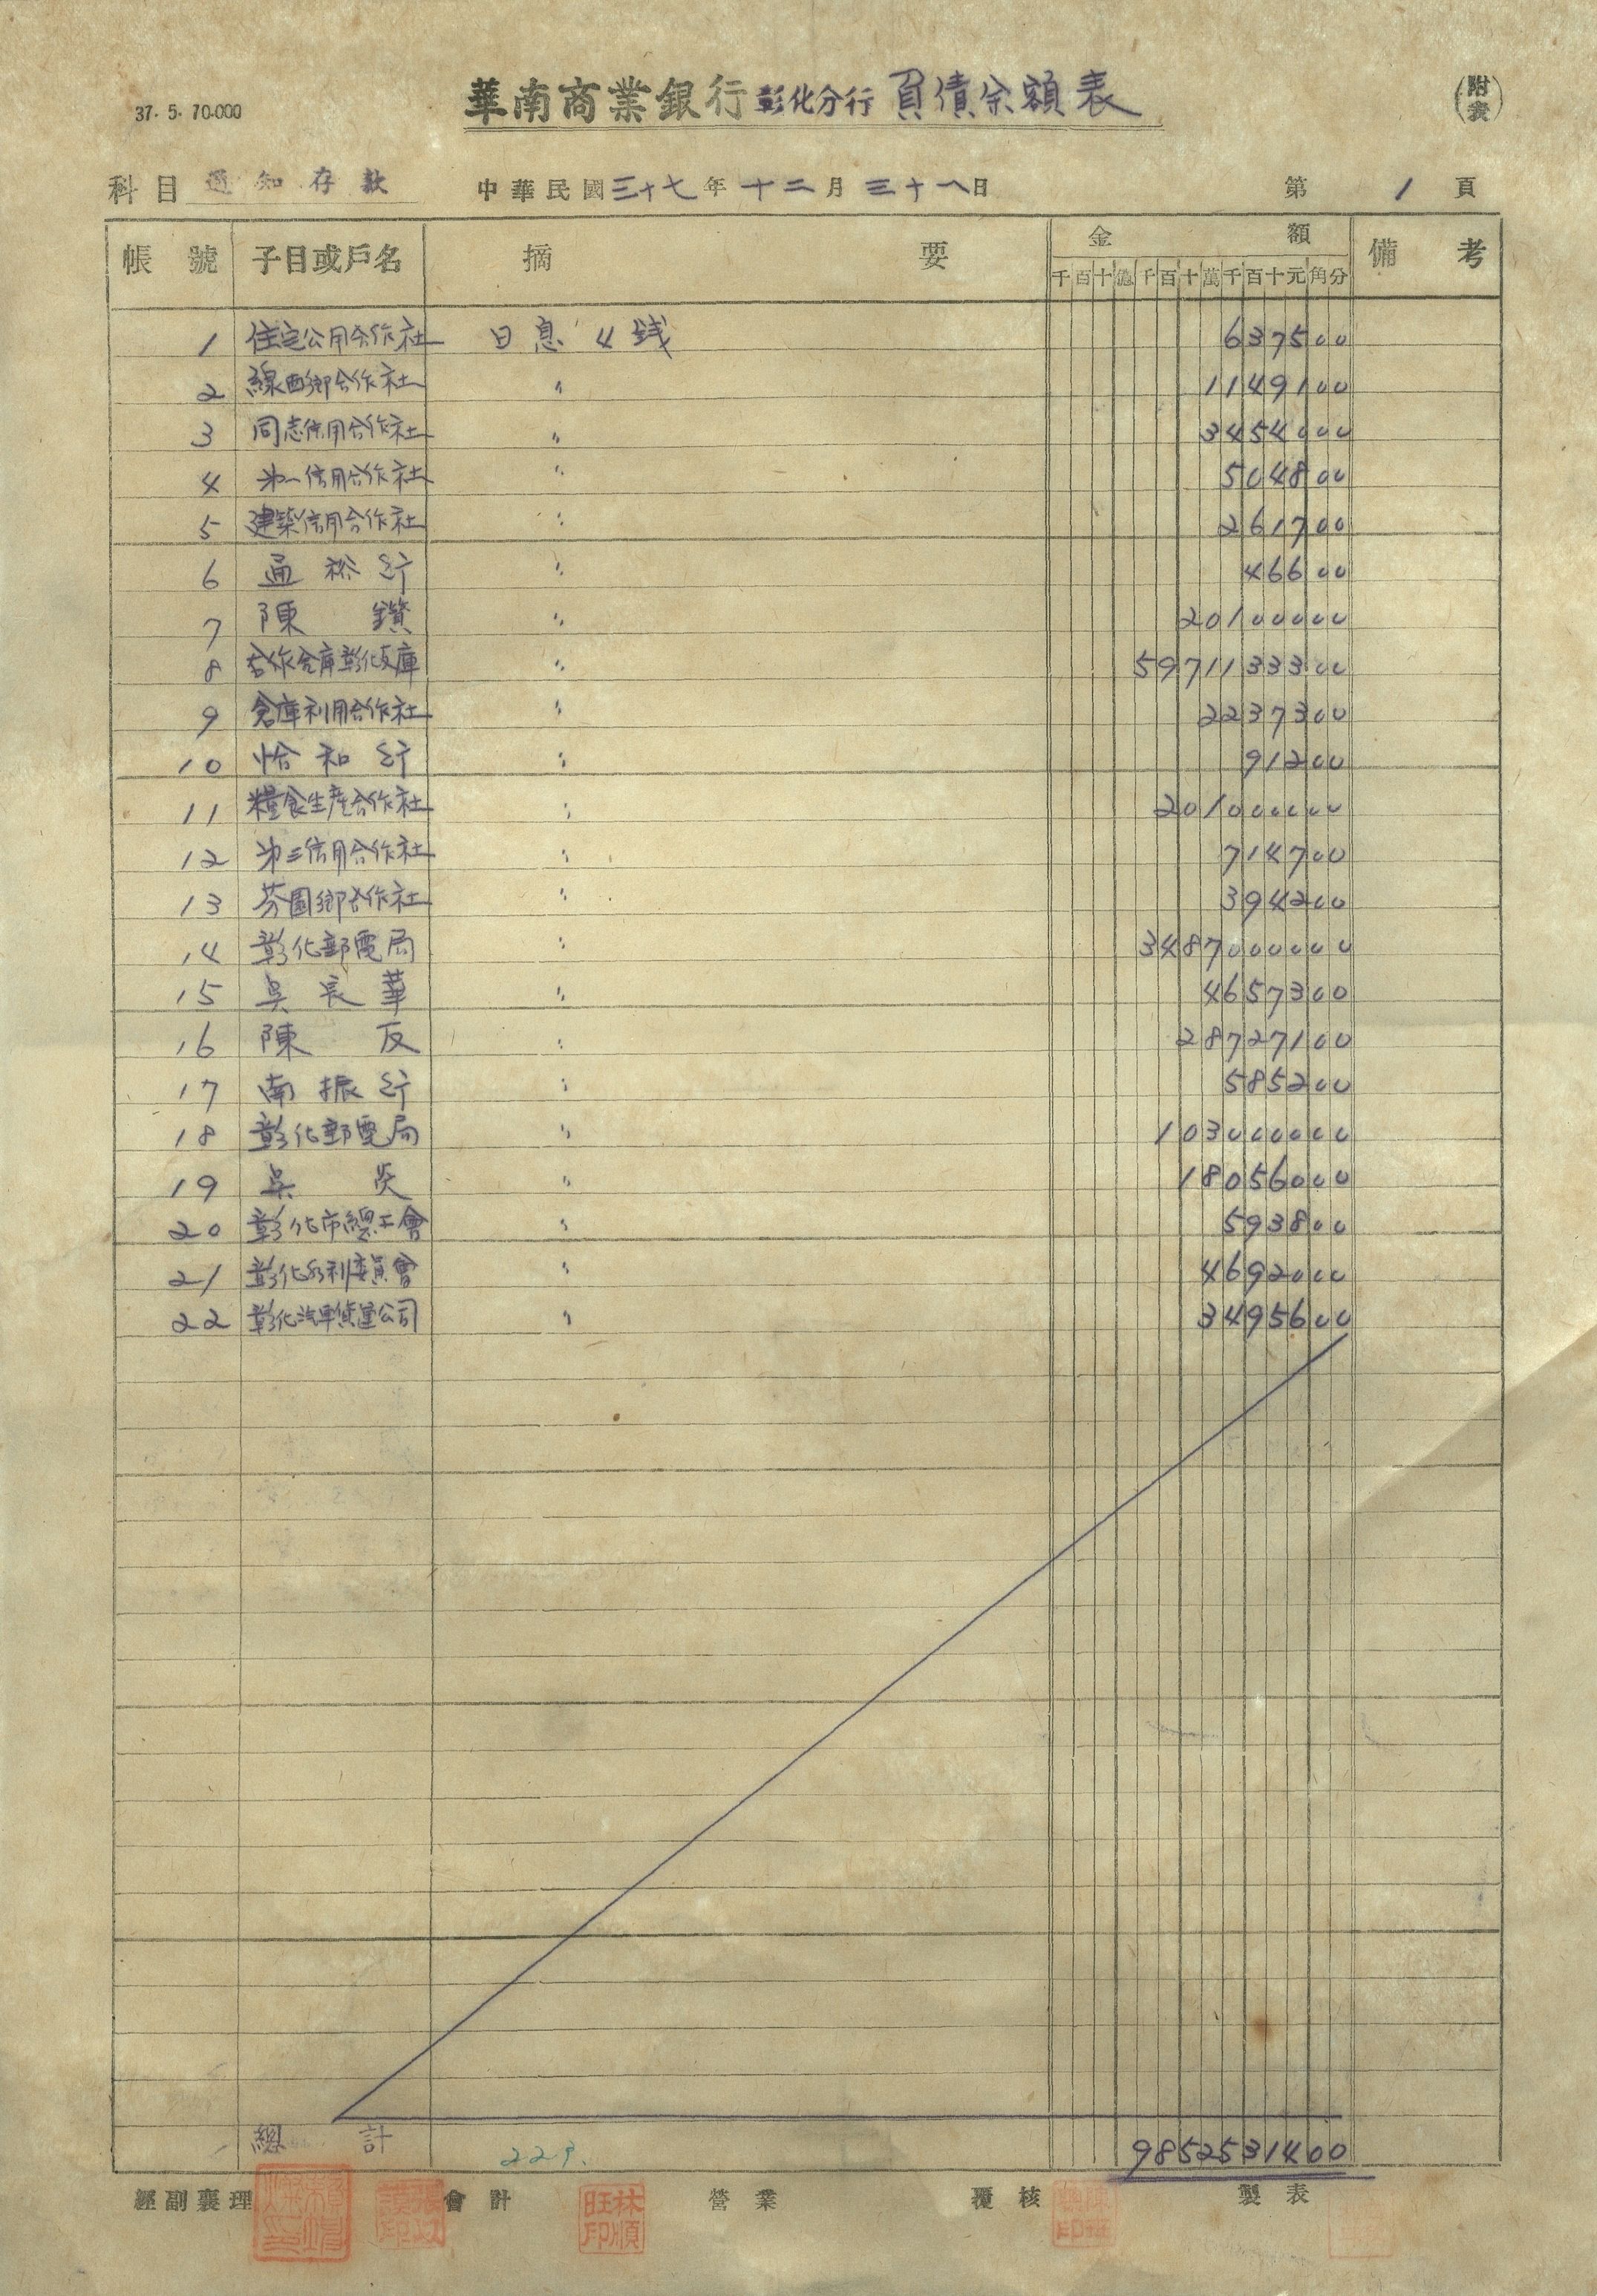 37. 5. 70.000
華南商業銀行彰化分行 負債余額表
(附表)
科目 通知存款 中華民國三十七年十二月三十一日 第 1 頁
帳號 子目或戶名 摘要 金額 備考
千百十億千百十萬千百十元角分
1 住宅公用合作社 日息 4 錢 637500
2 線西鄉合作社 〃 1149100
3 同志信用合作社 〃 3454000
4 第一信用合作社 〃 504800
5 建築信用合作社 〃 261700
6 通裕行 〃 46600
7 陳 鑽 〃 20100000
8 合作金庫彰化支庫 〃 5971133300
9 倉庫利用合作社 〃 2237300
10 恰和行 〃 91200
11 糧食生產合作社 〃 201000000
12 第三信用合作社 〃 714700
13 芬園鄉合作社 〃 394200
14 彰化郵電局 〃 3487000000
15 吳長華 〃 4657300
16 陳 反 〃 28727100
17 南振行 〃 585200
18 彰化郵電局 〃 103000000
19 吳 炎 〃 18056000
20 彰化市總工會 〃 593800
21 彰化水利委員會 〃 4692000
22 彰化汽車貨運公司 〃 3495600
總計 229. 9852531400
經副襄理 會計 營業 覆核 製表
林順旺印